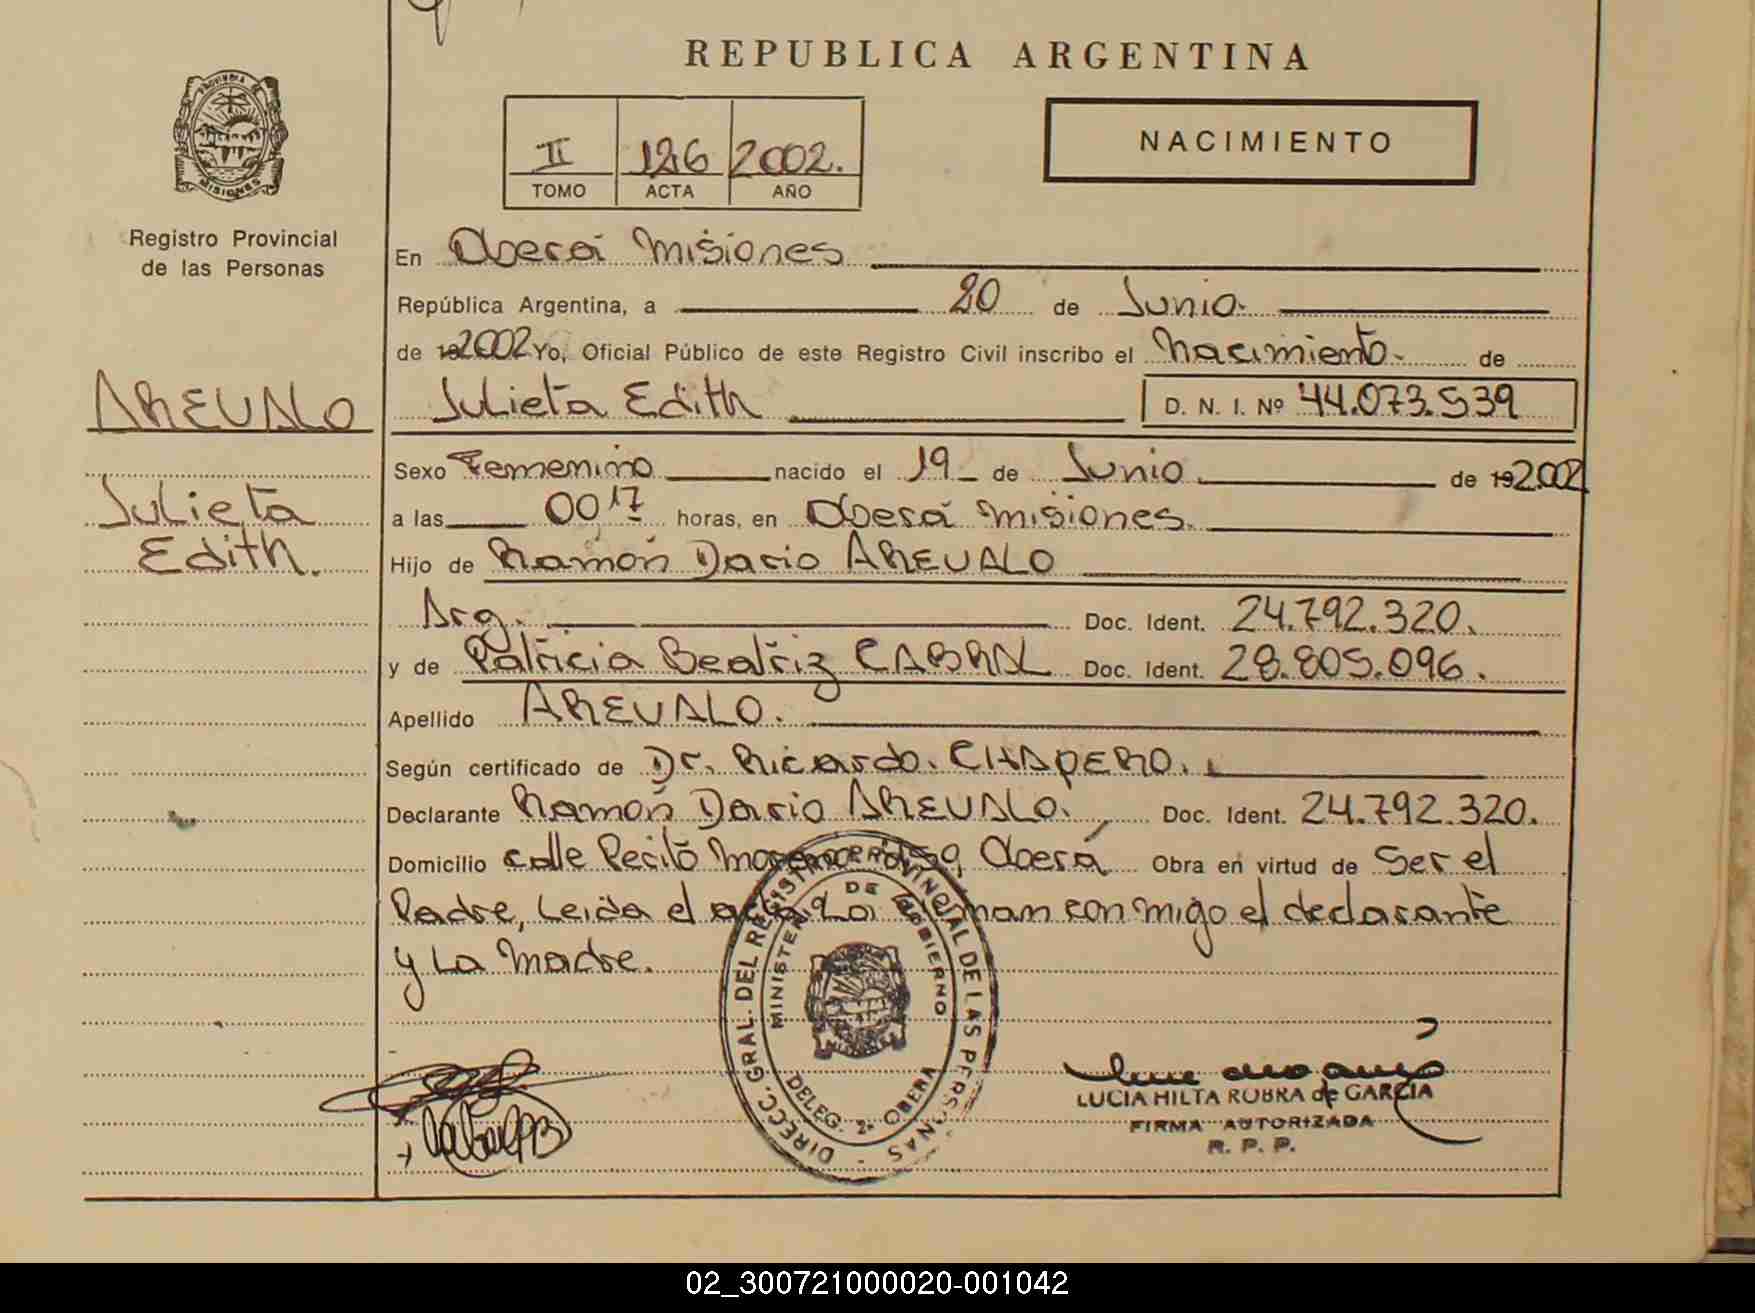 REPUBLICA ARGENTINA
PROVINCIA DE
MISIONES
Registro Provincial
de las Personas
II 126 2002.
TOMO ACTA AÑO
NACIMIENTO
En Oberá Misiones
República Argentina, a 20 de Junio.
de 192002 Yo, Oficial Público de este Registro Civil inscribo el Nacimiento. de
AREVALO
Julieta Edith D. N. I. Nº 44.073.539
Sexo Femenino nacido el 19 de Junio. de 192002
Julieta
a las 00,17 horas, en Oberá Misiones.
Edith.
Hijo de Ramón Dario AREVALO
Arg. Doc. Ident. 24.792.320.
y de Patricia Beatriz CABRAL Doc. Ident. 28.805.096.
Apellido AREVALO.
Según certificado de Dr. Ricardo. CHAPERO.
Declarante Ramón Dario AREVALO. Doc. Ident. 24.792.320.
Domicilio calle Perito Moreno Oberá Obra en virtud de Ser el
Padre, Leida el acta La firman conmigo el declarante
y La Madre.
DIRECC. GRAL. DEL REGISTRO PROVINCIAL DE LAS PERSONAS
MINISTERIO DE GOBIERNO
DELEG. 2ª OBERA
LUCIA HILTA ROBRA de GARCIA
FIRMA AUTORIZADA
R. P. P.
02_300721000020-001042